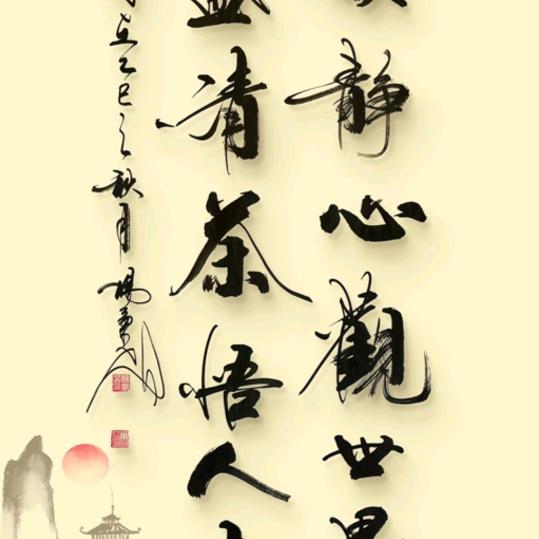 静心觀世界
盏清茶悟人
乙巳之秋月